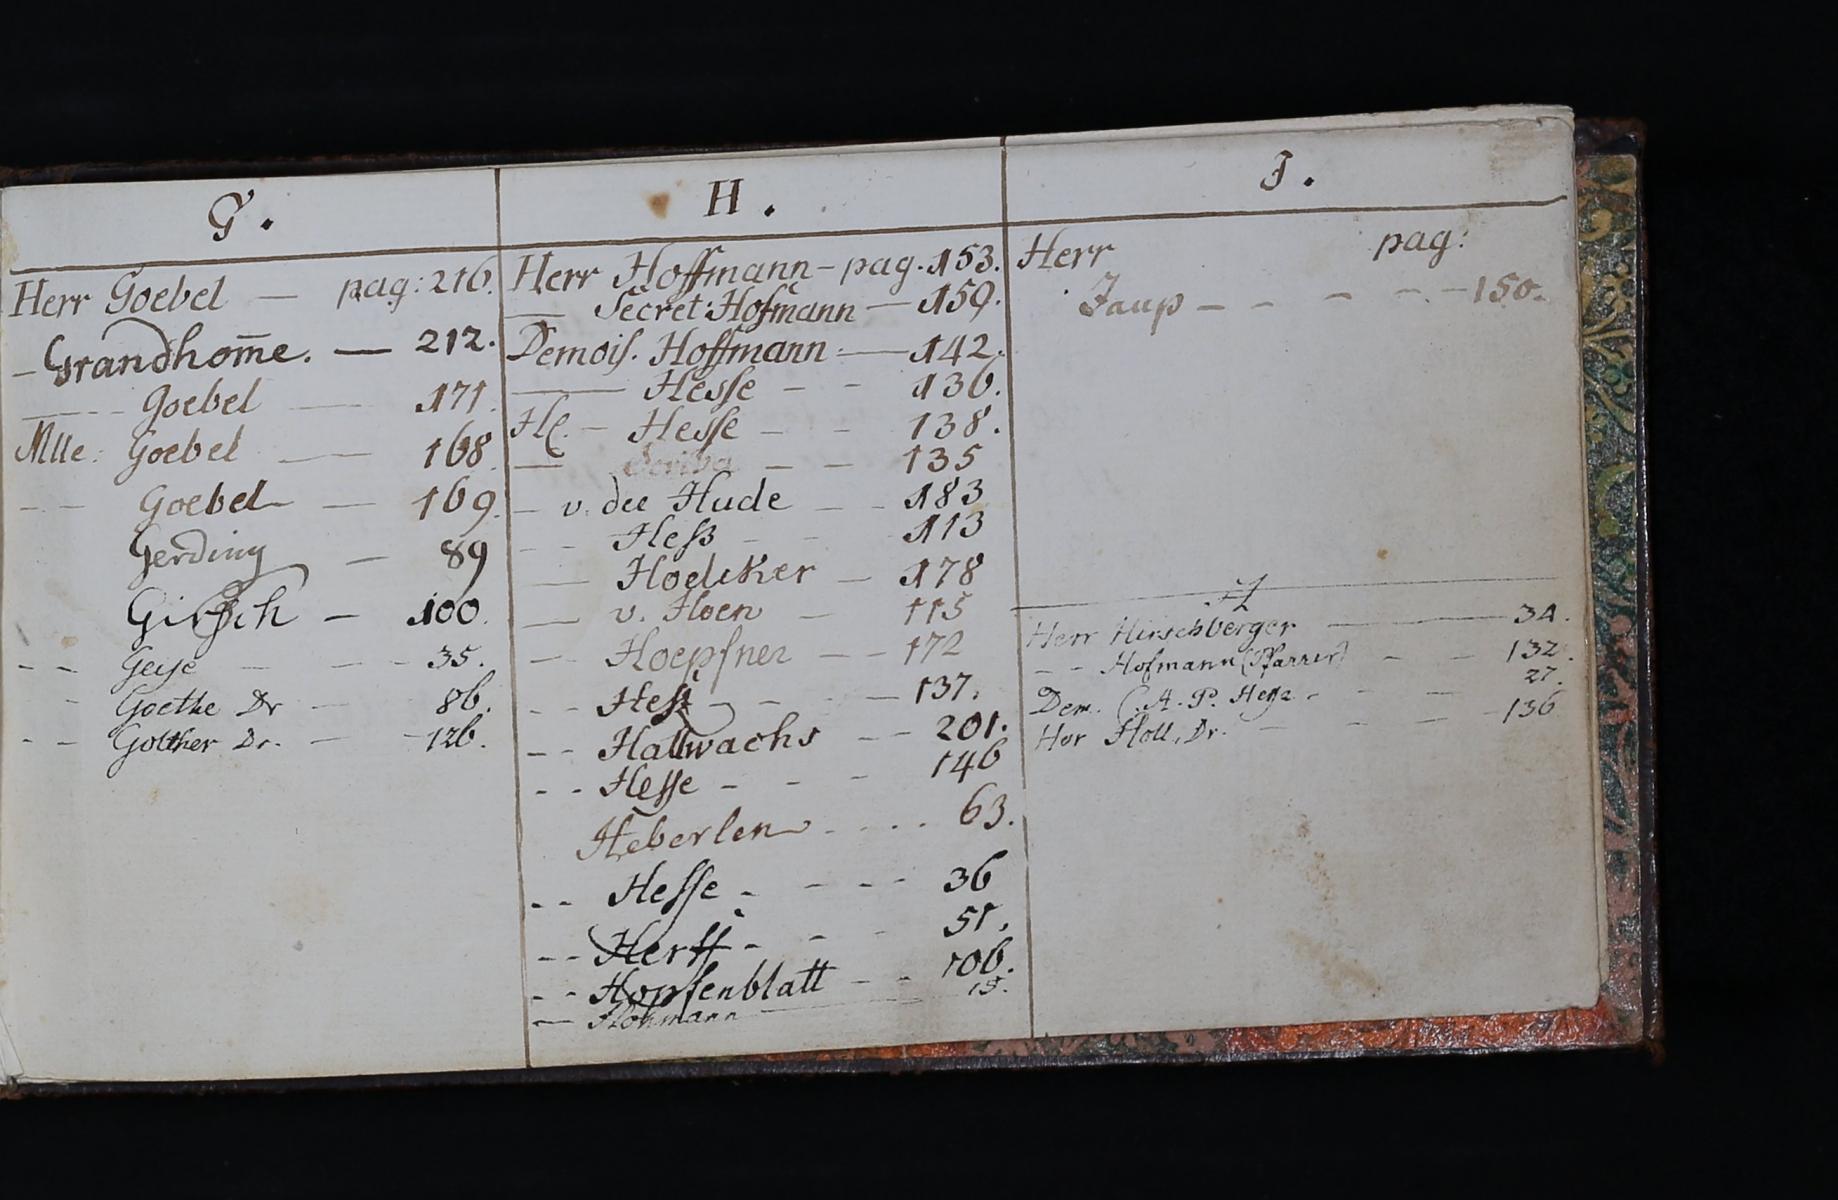 G.
Herr Goebel — pag: 216.
— Grandhom̄e. — 212.
— - - Goebel — 171.
Mlle: Goebel — 168.
- - Goebel — 169.
Gerding — 89
Girsch — 100.
- - Geyse - - - 35.
- Goethe Dr — 86.
- - Golther Dr. — 126.
H.
Herr Hoffmann – pag. 153.
— Secret: Hofmann — 159.
Demois. Hoffmann — 142.
— Hesse - - 136.
H - Hesse - - 138.
— - - 135
- v. der Hude - - 183
- - Heß - - 113
— Hoelcker — 178
— v. Hoen — 115
— Hoepfner — 172
- - Heß - - — 137.
- - Hallwachs - - 201.
- - Hesse - - - 146
Heberlen - . . . 63.
- - Hesse - - - - 36
- - Herff - - - 51.
- - Hopfenblatt - - 106.
— Hohmann — 15.
J.
Herr pag:
Jaup - - - - - 150.
H
Herr Hirschberger — 34.
- - Hofmann (Pfarrer) - - 132.
Dem. C. A. P. Heße - - - 27.
Her Holl, Dr. - - - - 136